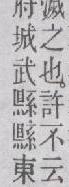 滅之也許不云
府城武縣縣東